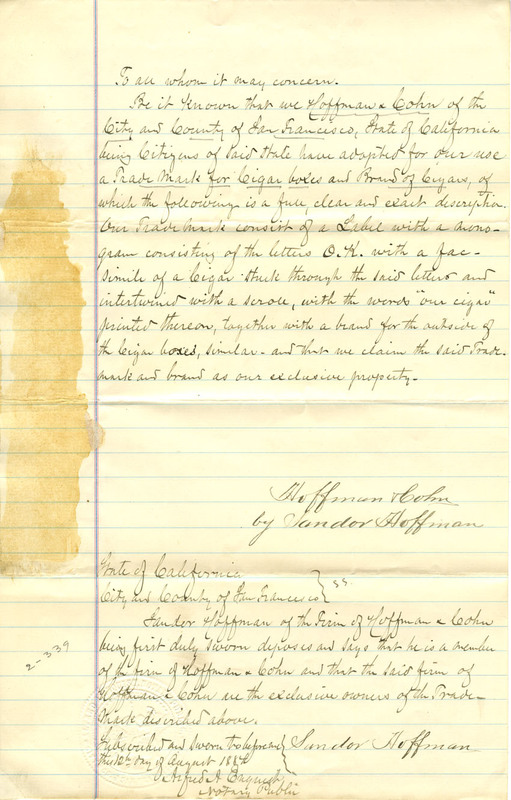 To all whom it may concern.
Be it known that we Hoffman & Cohn of the
City and County of San Francisco, State of California
being Citizens of said State have adopted for our use
a Trade Mark for Cigar boxes and Brand of Cigars, of
which the following is a full, clear and exact description.
Our Trade Mark consist of a Label with a mono-
gram consisting of the letters O.K. with a fac-
simile of a Cigar stuck through the said letters and
intertwined with a scrole, with the words "our cigar"
printed thereon, together with a brand for the outside of
the Cigar boxes, similar - and that we claim the said Trade-
mark and brand as our exclusive property -
Hoffman & Cohn
by Sandor Hoffman
State of California
City and County of San Francisco } ss.
Sandor Hoffman of the Firm of Hoffman & Cohn
being first duly sworn deposes and says that he is a member
of the firm of Hoffman & Cohn and that the said firm of
Hoffman & Cohn are the exclusive owners of the Trade-
Mark discribed above.
Subscribed and sworn to before me } Sandor Hoffman
this 12th day of August
Alfred A. Enquist
Notary Public
2-339